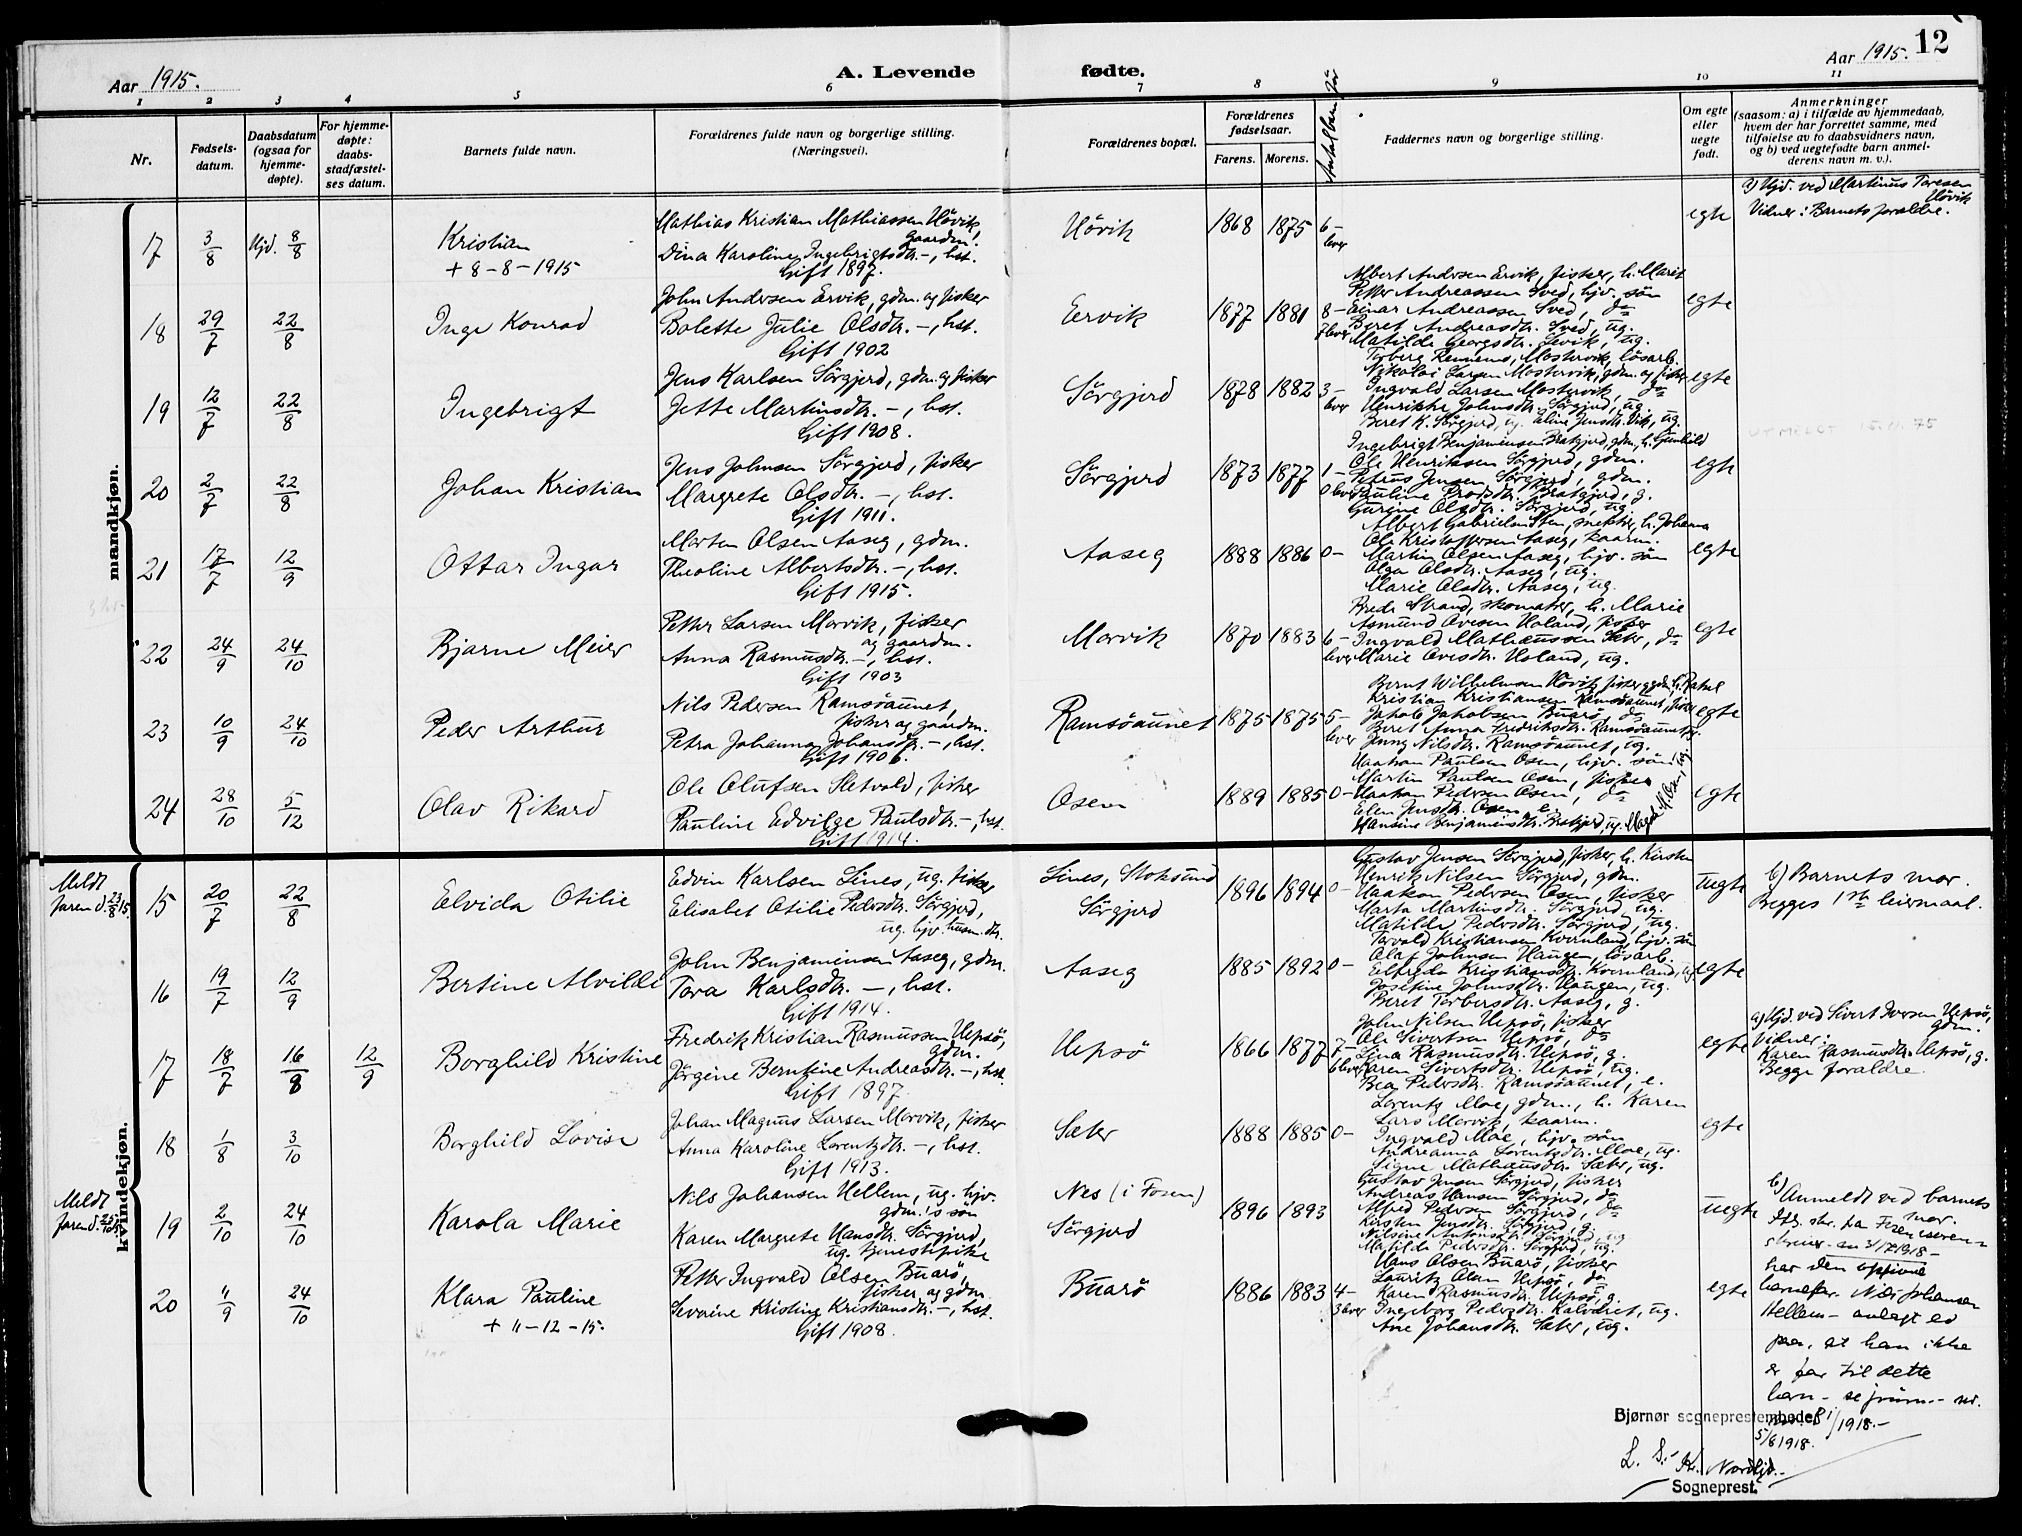 Aar 1915.
A. Levende
fødte.
Aar 1915.
12
1 2 3 4 5 6 7 8 9 10 11
Nr.
Fødsels-
datum.
Daabsdatum
(ogsaa for
hjemme-
døpte).
For hjemme-
døpte:
daabs-
stadfæstel-
ses datum.
Barnets fulde navn.
Forældrenes fulde navn og borgerlige stilling.
(Næringsvei).
Forældrenes bopæl.
Forældrenes
fødselsaar.
Farens. Morens.
Faddernes navn og borgerlige stilling.
Om egte
eller
uegte
født.
Anmerkninger
(saasom: a) i tilfælde av hjemmedaab,
hvem der har forrettet samme, med
tilføielse av to daabsvidners navn,
og b) ved uegtefødte barn anmel-
derens navn m. v.).
mandkjøn.
17 3/8 Hjd. 8/8
Kristian
+ 8-8-1915
Mathias Kristian Mathiassen Hövik,
gaardm.
Dina Karoline Ingebrigtsdtr. -, hst.
Gift 1897.
Hövik 1868 1875 6-
lever
egte
a) Hjd. ved Martinus Toresen
Hövik
Vidner: Barnets forældre.
18 29/7 22/8
Inge Konrad
John Andersen Ervik, gdm. og fisker
Bolette Julie Olsdtr. -, hst.
Gift 1902
Eervik 1877 1881 8-
7 lever
Albert Andersen Ervik, fisker, h. Marit
Petter Andreassen Sved, hjv. søn
Einar Andreassen Sved, do
Beret Andreasdtr. Sved, ug.
Matilde Georgsdtr. Sevik, ug.
egte
19 12/7 22/8
Ingebrigt
Jens Karlsen Sörgjerd, gdm. og fisker
Jette Martinsdtr. -, hst.
Gift 1908.
Sörgjerd 1878 1882 3-
lever
Torberg Rennemo, Mostervik, lösarb.
Nikolai Larsen Mostervik, gdm. og fisker
Ingvald Larsen Mostervik, do
Henrikke Johnsdtr. Sörgjerd, ug.
Beret K. Sörgjerd, ug. Aline Jensdtr. Vik, ug.
egte
UTMELDT 15.11.75
20 2/7 22/8
Johan Kristian
Jens Johnsen Sörgjerd, fisker
Margrete Olsdtr. -, hst.
Gift 1911.
Sörgjerd 1873 1877 1-
0 lever
Ingebrigt Benjaminsen Bratgjerd, gdm., h. Gunhild
Ole Henriksen Sörgjerd, gdm.
Petrus Jensen Sörgjerd, gdm.
Pauline Brodsdtr. Bratgjerd, g.
Gurine Olsdtr. Sörgjerd, ug.
egte
21 17/7 12/9
Ottar Ingar
Morten Olsen Aaseg, gdm.
Theoline Albertsdtr. -, hst.
Gift 1915.
Aaseg 1888 1886 0-
Albert Gabrielsen Sten, snekker, h. Johanna
Ole Kristoffersen Aaseg, kaarm.
Martin Olsen Aaseg, hjv. søn
Olga Olsdtr. Aaseg, ug.
Marie Olsdtr. Aaseg, ug.
egte
22 24/9 24/10
Bjarne Meier
Petter Larsen Morvik, fisker
og gaardm.
Anna Rasmusdtr. -, hst.
Gift 1903
Morvik 1870 1883 6-
lever
Brede Strand, skomaker, h. Marie
Asmund Ovesen Holand, fisker
Ingvald Mathæussen Sæter, do
Marie Ovesdtr. Holand, ug.
egte
23 10/9 24/10
Peder Arthur
Nils Pedersen Ramsöaunet,
fisker og gaardm.
Petra Johanna Johansdtr. -, hst.
Gift 1906.
Ramsöaunet 1875 1875 5-
lever
Bernt Wilhelmsen Hövik, fisker og gdm., h. Rakel
Kristian Kristiansen Ramsöaunet, fisker
Jakob Jakobsen Buarö, do
Beret Anna Fredriksdtr. Ramsöaunet, g.
Jenny Nilsdtr. Ramsöaunet, ug.
egte
24 28/10 5/12
Olav Rikard
Ole Olufsen Sletvold, fisker
Pauline Edvilge Paulsdtr. -, hst.
Gift 1914.
Osen 1889 1885 0-
Haakon Paulsen Osen, hjv. søn
Martin Paulsen Osen, fisker
Haakon Pedersen Osen, do
Elen Jensdtr. Osen,
Hansine Benjaminsdtr. Bratgjerd, ug.
egte
kvindekjøn.
Meldt
faren d. 23/8 15.
15 20/7 22/8
Elvida Otilie
Edvin Karlsen Lines, ug. fisker,
Elisabet Otilie Pedersdtr. Sörgjerd,
ug. hjv. husm. dtr.
Lines, Stoksund
Sörgjerd
1896 1894 0-
Gustav Jensen Sörgjerd, fisker, h. Kirsten
Henrik Nilsen Sörgjerd, gdm.
Haakon Pedersen Osen, fisker
Marta Martinsdtr. Sörgjerd, ug.
Matilde Pedersdtr. Sörgjerd, ug.
uegte
b) Barnets mor.
Begges 1ste leiermaal.
16 19/7 12/9
Bertine Alvilde
John Benjaminsen Aaseg, gdm.
Tora Karlsdtr. -, hst.
Gift 1914.
Aaseg 1885 1892 0-
Torvald Kristiansen Kvernland, hjv. søn
Olaf Johnsen Haugen, lösarb.
Elfrida Kristiansdtr. Kvernland, ug.
Josefine Johnsdtr. Haugen, ug.
Beret Torbersdtr. Aaseg, g.
egte
17 18/7 16/8 12/9
Borghild Kristine
Fredrik Kristian Rasmussen Hepsö,
gdm.
Jörgine Berntine Andreasdtr. -, hst.
Gift 1897.
Hepsö 1866 1877 7-
6 lever
John Nilsen Hepsö, fisker
Ole Sivertsen Hepsö, do
Lina Rasmusdtr. Hepsö, g.
Karen Sivertsdtr. Hepsö, ug.
Bea Pedersdtr. Ramsöaunet, e.
egte
a) Hjd. ved Sivert Iversen Hepsö,
gdm.
Vidner:
Karen Rasmusdtr. Hepsö, g.
Begge forældre.
18 1/8 3/10
Borghild Lovise
Johan Magnus Larsen Morvik, fisker
Anna Karoline Lorentzdtr. -, hst.
Gift 1913.
Sæter 1888 1885 0-
Lorentz Moe, gdm., h. Karen
Lars Morvik, kaarm.
Ingvald Moe, hjv. søn
Andreanna Lorentzdtr. Moe, ug.
Signe Mathæusdtr. Sæter, ug.
egte
Meldt
faren d. 25/10 15.
19 2/10 24/10
Karola Marie
Nils Johansen Hellem, ug. hjv.
gdm.'s søn
Karen Margrete Hansdtr. Sörgjerd,
ug. tjenestepike
Nes (i Fosen)
Sörgjerd
1896 1893
Gustav Jensen Sörgjerd, fisker
Andreas Hansen Sörgjerd, do
Alfred Pedersen Sörgjerd, do
Kirsten Jensdtr. Sörgjerd, g.
Nilsine Antonsdtr. Sörgjerd, ug
Matilde Pedersdtr. Sörgjerd, ug.
uegte
b) Anmeldt ved barnets
mor.
20 11/9 24/10
Klara Pauline
+ 11-12-15.
Petter Ingvald Olsen Buarö,
fisker og gdm.
Sevrine Kristine Kristiansdtr. -, hst.
Gift 1908.
Buarö 1886 1883 4-
3 lever
Hans Olsen Buarö, fisker
Lauritz Olsen Hepsö, do
Karen Rasmusdtr. Hepsö, g.
Ingeborg Pedersdtr. Kalvöret, ug.
Ane Johansdtr. Sæter, ug.
egte
Ifg. skr. fra
av 3/7 1918 -
har den opgivne
barnefar Nils Johansen
Hellem - avlagt ed
paa, at han ikke
er far til dette
barn - se
1918.-
5/8 1918.
Bjørnør sogneprestembede,
L. S. K. Nordlid.-
Sogneprest.